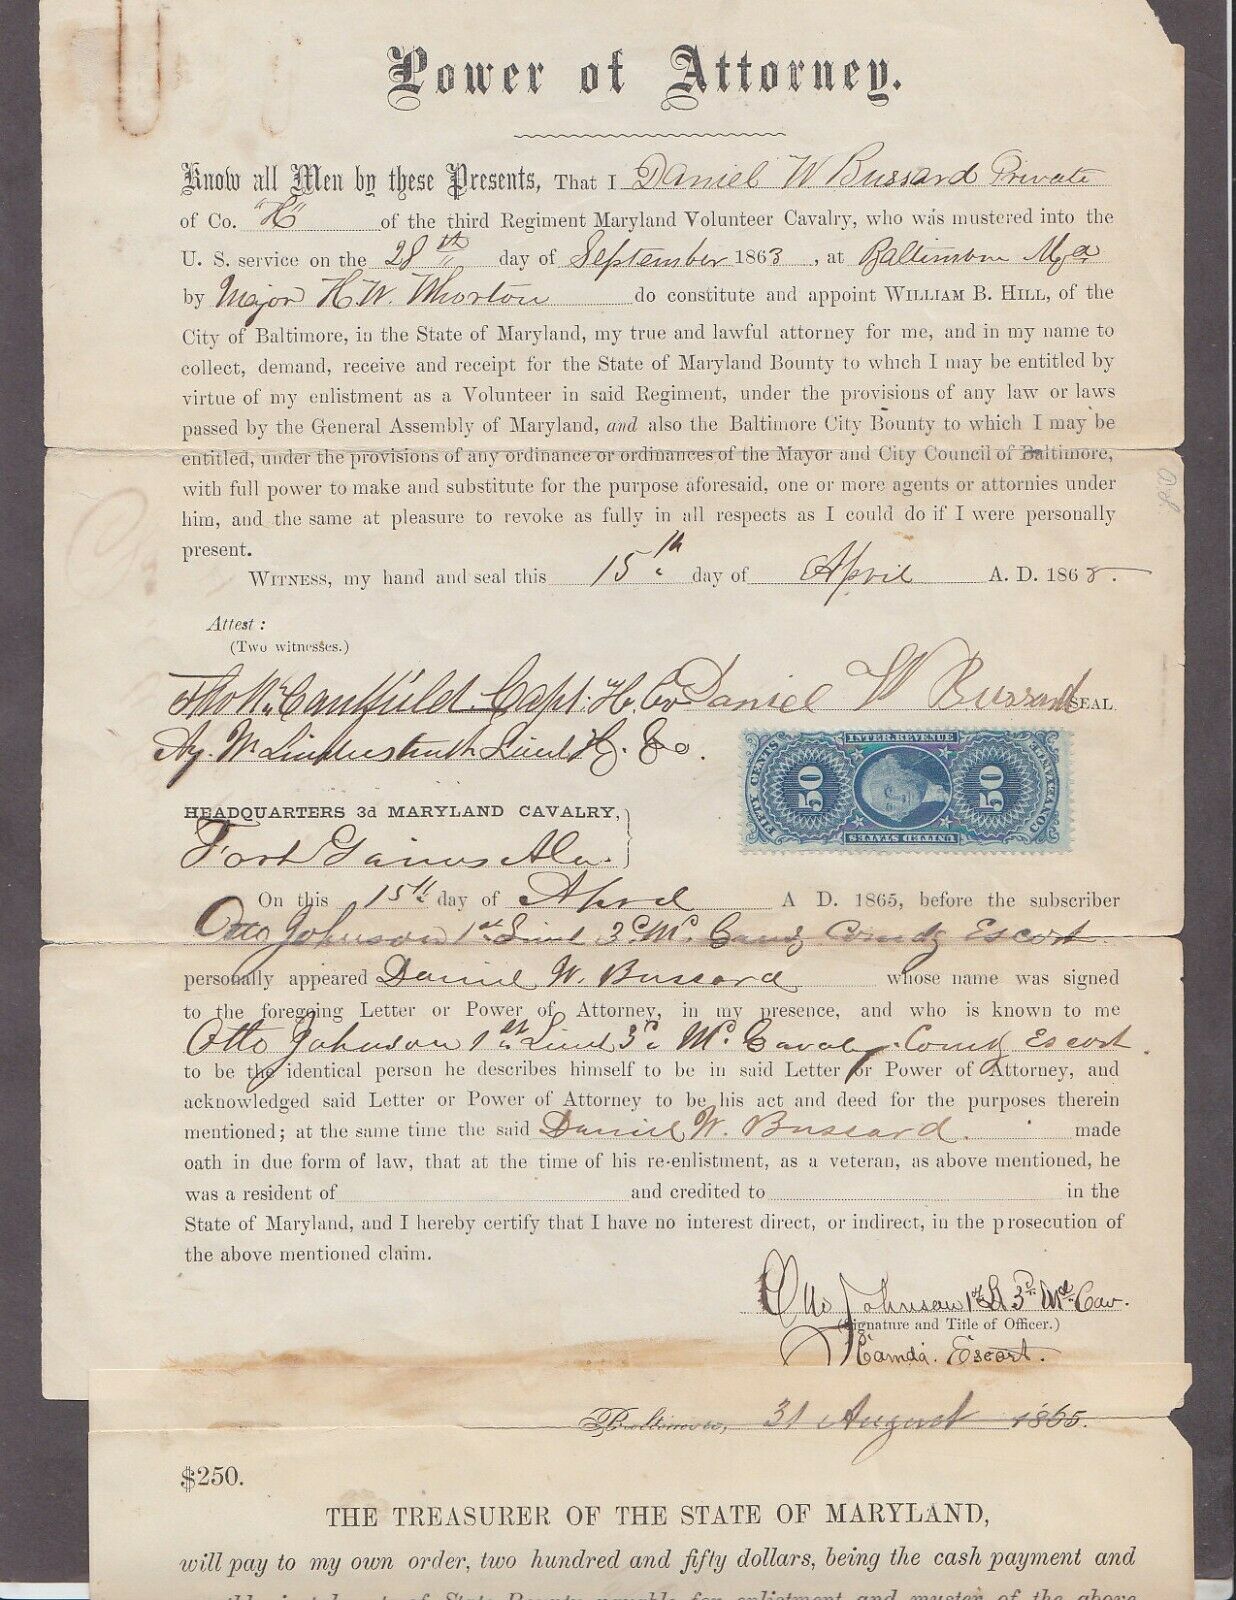 Power of Attorney.
Know all Men by these Presents, That I Daniel W Bussard Private
of Co. "H" of the third Regiment Maryland Volunteer Cavalry, who was mustered into the
U. S. service on the 28th day of September 1863, at Baltimore Md
by Major H. W. Whorton do constitute and appoint WILLIAM B. HILL, of the
City of Baltimore, in the State of Maryland, my true and lawful attorney for me, and in my name to
collect, demand, receive and receipt for the State of Maryland Bounty to which I may be entitled by
virtue of my enlistment as a Volunteer in said Regiment, under the provisions of any law or laws
passed by the General Assembly of Maryland, and also the Baltimore City Bounty to which I may be
entitled, under the provisions of any ordinance or ordinances of the Mayor and City Council of Baltimore,
with full power to make and substitute for the purpose aforesaid, one or more agents or attornies under
him, and the same at pleasure to revoke as fully in all respects as I could do if I were personally
present.
WITNESS, my hand and seal this 15th day of April A. D. 186
Attest:
(Two witnesses.)
Capt. H. Co Daniel W Bussard SEAL
Lieut H. Co.
INTER. REVENUE
FIFTY CENTS 50 50 CONVEYANCE
UNITED STATES
HEADQUARTERS 3d MARYLAND CAVALRY,
Fort Gaines Ala.
On this 15th day of April A D. 1865, before the subscriber
Otto Johnson 1st Lieut 3d Md. Cavy Comdg Escort
personally appeared Daniel W. Bussard whose name was signed
to the foregoing Letter or Power of Attorney, in my presence, and who is known to me
Otto Johnson 1st Lieut 3d Md. Cavaly. Comdg Escort.
to be the identical person he describes himself to be in said Letter or Power of Attorney, and
acknowledged said Letter or Power of Attorney to be his act and deed for the purposes therein
mentioned; at the same time the said Daniel W. Bussard. made
oath in due form of law, that at the time of his re-enlistment, as a veteran, as above mentioned, he
was a resident of and credited to in the
State of Maryland, and I hereby certify that I have no interest direct, or indirect, in the prosecution of
the above mentioned claim.
Otto Johnson 1st Lt 3d Md. Cav.
(Signature and Title of Officer.)
Comdg. Escort.
Baltimore, 31 August 1865.
$250.
THE TREASURER OF THE STATE OF MARYLAND,
will pay to my own order, two hundred and fifty dollars, being the cash payment and
of State Bounty payable for enlistment and muster of the above